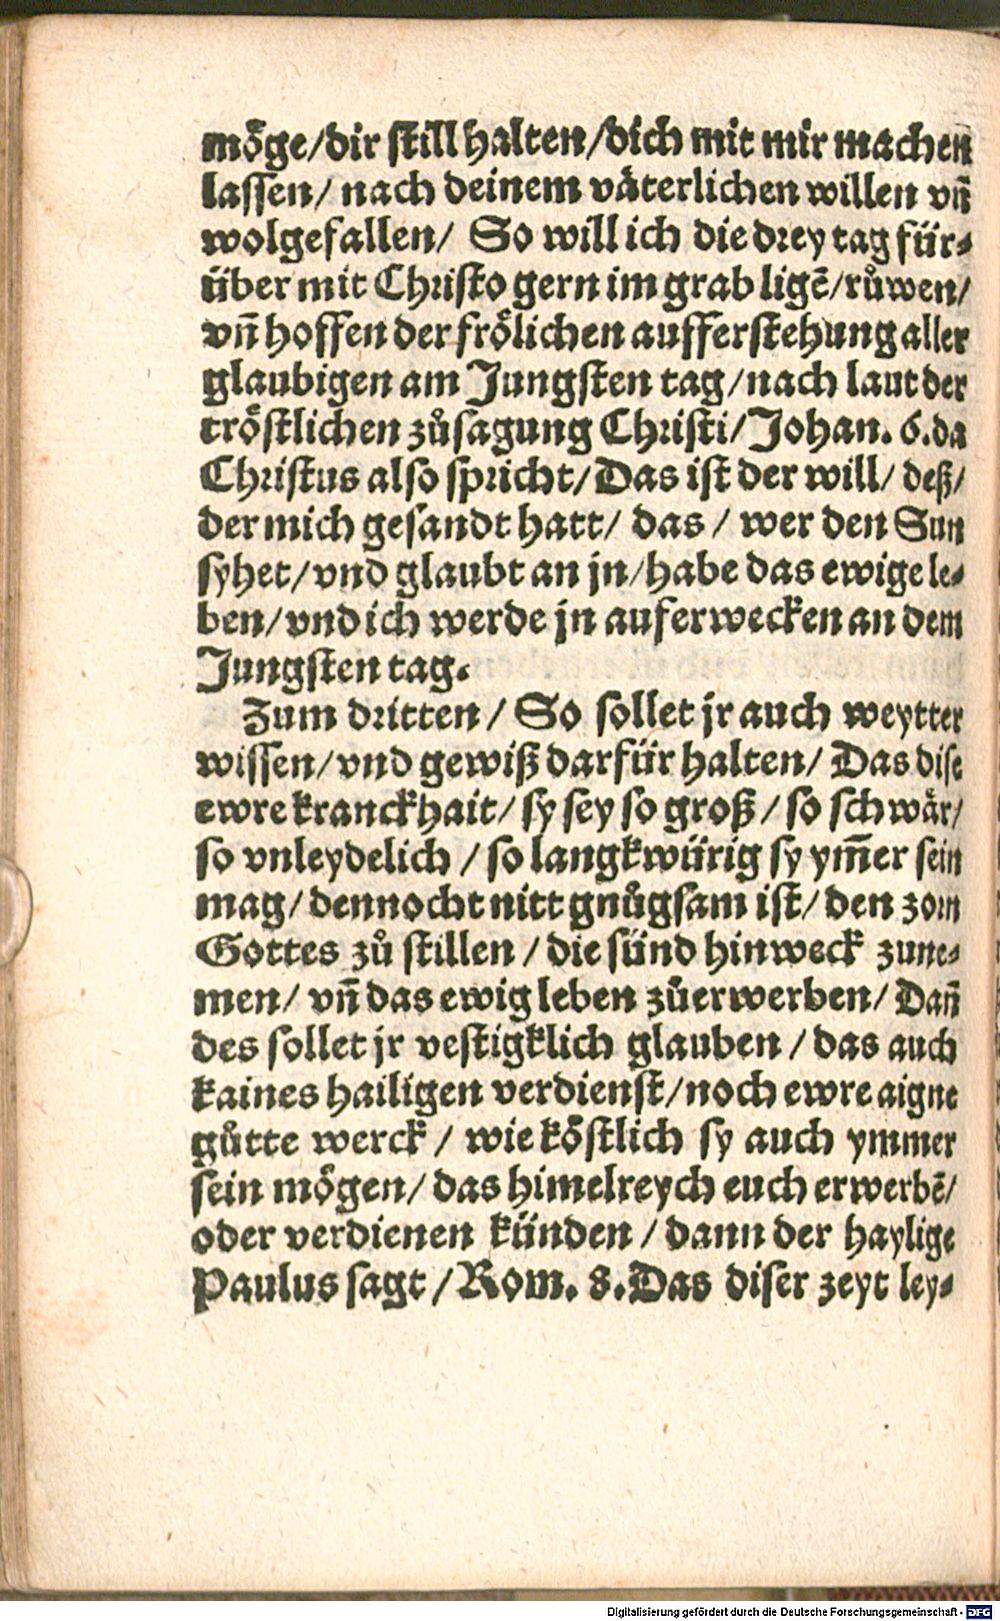 möge/dir still halten/dich mit mir machen
lassen/ nach deinem väterlichen willen vñ
wolgefallen/ So will ich die drey tag für⸗
über mit Christo gern im grab ligẽ/růwen/
vñ hoffen der frölichen aufferstehung aller
glaubigen am Jungsten tag/nach laut der
tröstlichen zůsagung Christi/Johan. 6.da
Christus also spricht/Das ist der will/ deß/
der mich gesandt hatt/ das/ wer den Sun
syhet/vnd glaubt an jn/habe das ewige le⸗
ben/vnd ich werde jn auferwecken an dem
Jungsten tag.
Zum dritten/ So sollet jr auch weytter
wissen/vnd gewiß darfür halten/ Das dise
ewre kranckhait/ sy sey so groß/ so schwär/
so vnleydelich/ so langkwürig sy ym̃er sein
mag/ dennocht nitt gnůgsam ist/ den zorn
Gottes zů stillen/ die sünd hinweck zune⸗
men/ vñ das ewig leben zůerwerben/ Dañ
des sollet jr vestigklich glauben/ das auch
kaines hailigen verdienst/noch ewre aigne
gůtte werck/ wie köstlich sy auch ymmer
sein mögen/ das himelreych euch erwerbẽ/
oder verdienen künden/ dann der haylige
Paulus sagt/ Rom. 8.Das diser zeyt ley⸗
Digitalisierung gefördert durch die Deutsche Forschungsgemeinschaft - DFG